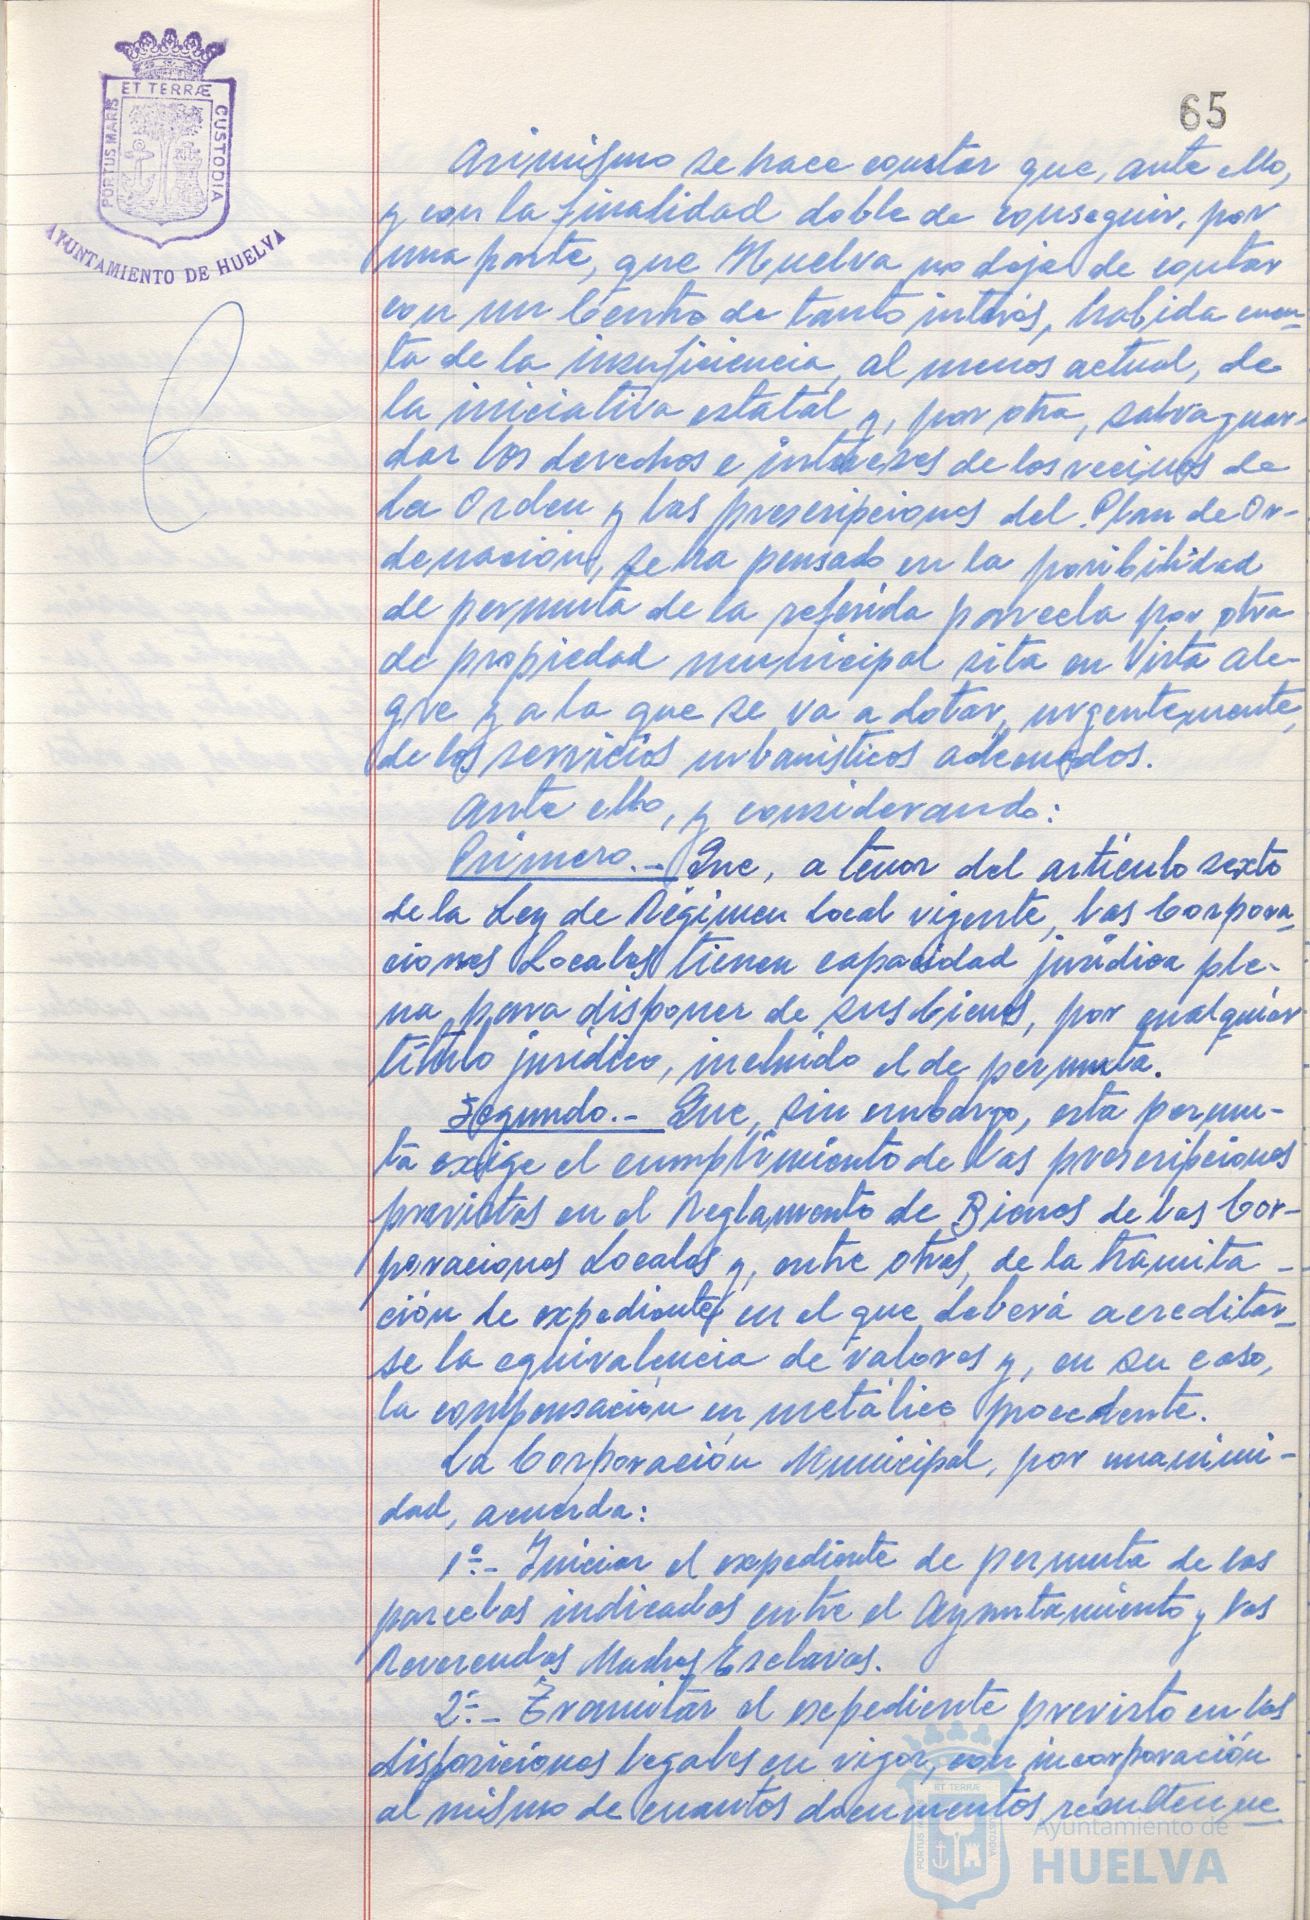 ET TERRÆ
PORTUS MARIS
CUSTODIA
AYUNTAMIENTO DE HUELVA
65
Asimismo se hace constar que, ante ello,
y con la finalidad doble de conseguir, por
una parte, que Huelva no deje de contar
con un Centro de tanto interés, habida cuen-
ta de la insuficiencia, al menos actual, de
la iniciativa estatal y, por otra, salvaguar-
dar los derechos e intereses de los vecinos de
La Orden y las prescripciones del Plan de Or-
denación, se ha pensado en la posibilidad
de permuta de la referida parcela por otra
de propiedad municipal sita en Vista Ale-
gre y a la que se va a dotar, urgentemente,
de los servicios urbanísticos adecuados.
Ante ello, y considerando:
Primero.- Que, a tenor del artículo sexto
de la Ley de Régimen Local vigente, las Corpora-
ciones Locales tienen capacidad jurídica ple-
na para disponer de sus bienes, por cualquier
título jurídico, incluido el de permuta.
Segundo.- Que, sin embargo, esta permu-
ta exige el cumplimiento de las prescripciones
previstas en el Reglamento de Bienes de las Cor-
poraciones Locales y, entre otras, de la tramita-
ción de expediente en el que deberá acreditar-
se la equivalencia de valores y, en su caso,
la compensación en metálico procedente.
La Corporación Municipal, por unanimi-
dad, acuerda:
1º.- Iniciar el expediente de permuta de las
parcelas indicadas entre el Ayuntamiento y las
Reverendas Madres Esclavas.
2º.- Tramitar el expediente previsto en las
disposiciones legales en vigor, con incorporación
al mismo de cuantos documentos resulten ne
ET TERRÆ
Ayuntamiento de
HUELVA